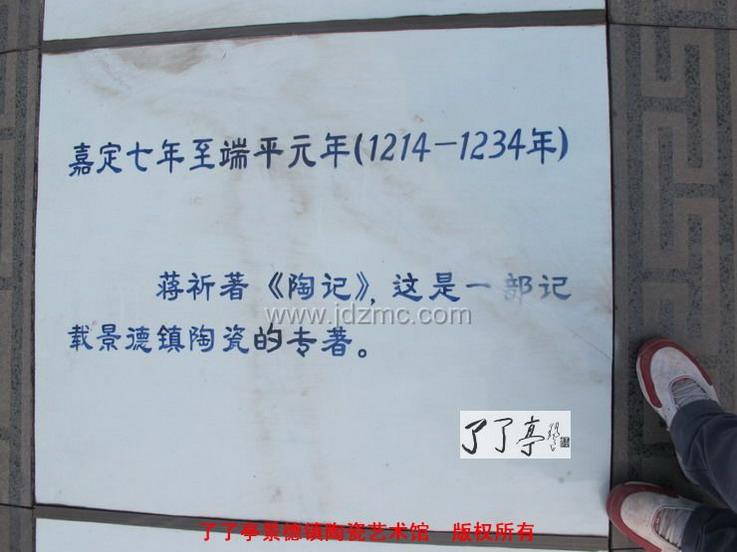 嘉定七年至端平元年(1214-1234年)
蒋祈著《陶记》,这是一部记
www.jdzmc.com
载景德镇陶瓷的专著。
了了亭
了了亭景德镇陶瓷艺术馆 版权所有